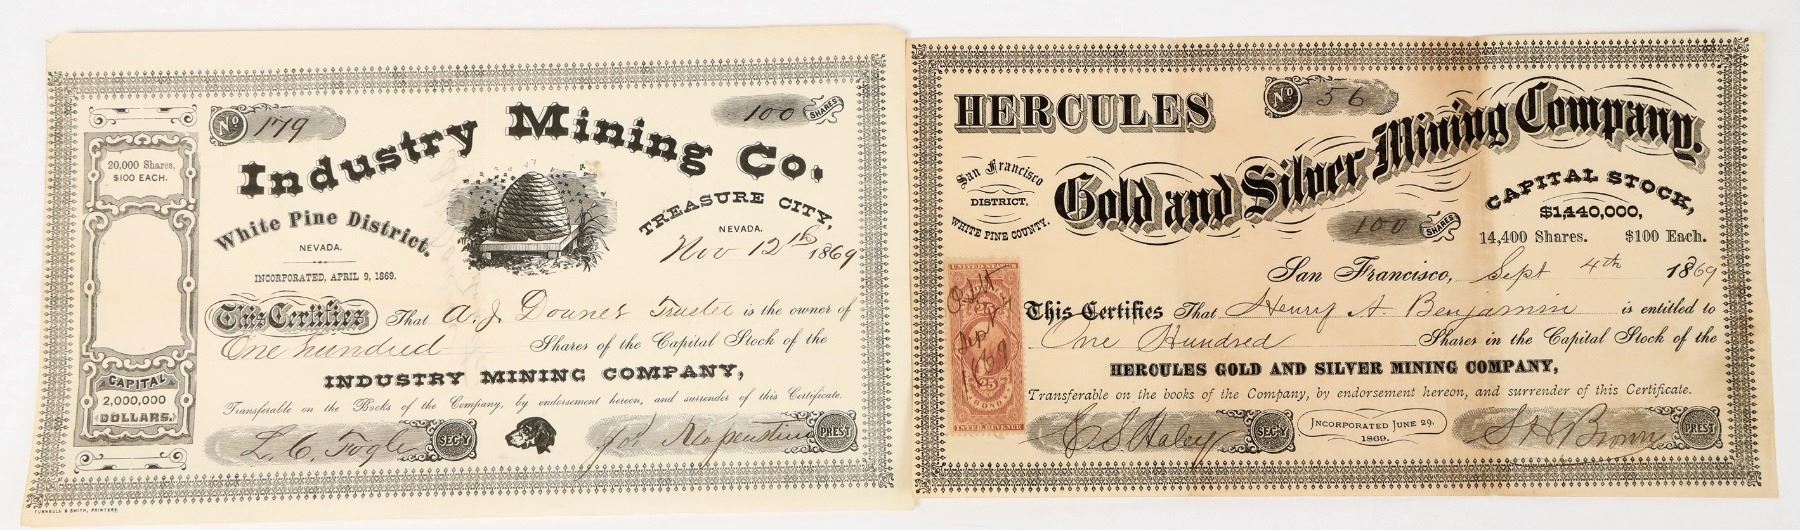 No 179
100 SHARES
Industry Mining Co.
20,000 Shares,
$100 EACH.
White Pine District.
NEVADA.
INCORPORATED, APRIL 9, 1869.
TREASURE CITY,
NEVADA.
Nov 12th 1869
This Certifies That A. J. Downer Trustee is the owner of
One hundred Shares of the Capital Stock of the
INDUSTRY MINING COMPANY,
Transferable on the Books of the Company, by endorsement hereon, and surrender of this Certificate.
CAPITAL
2,000,000
DOLLARS.
L. C. Fogle SEC'Y
PREST
TURNBULL & SMITH, PRINTERS.
HERCULES
No 56
Gold and Silver Mining Company.
San Francisco
DISTRICT,
WHITE PINE COUNTY.
100 SHARES
CAPITAL STOCK,
$1,440,000,
14,400 Shares. $100 Each.
San Francisco, Sept 4th 1869
This Certifies That Henry A. Benjamin is entitled to
One Hundred Shares in the Capital Stock of the
HERCULES GOLD AND SILVER MINING COMPANY,
Transferable on the books of the Company, by endorsement hereon, and surrender of this Certificate.
UNITED STATES
25
BOND
INTER. REVENUE
Sept 4
1869
SEC'Y
INCORPORATED JUNE 29,
1869.
Brown
PREST